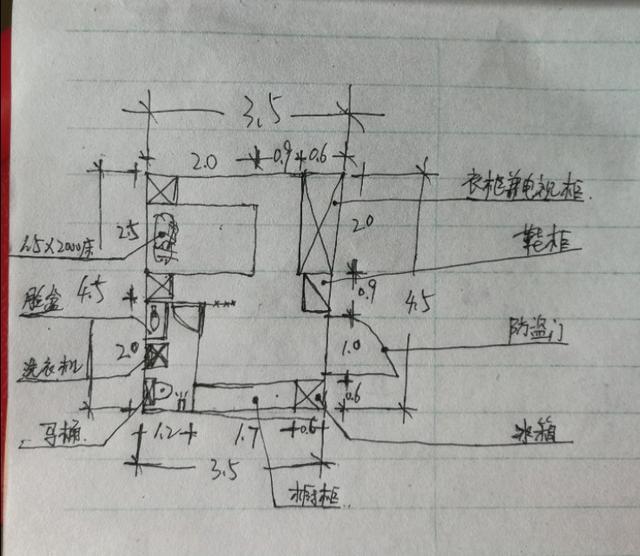 3.5
2.0 0.9 0.6
衣柜兼电视柜
2.5
2.0
鞋柜
1.5×2000床
4.5
0.9
4.5
防盗门
洗衣机
2.0
1.0
0.6
马桶
1.2
1.7
0.6
冰箱
3.5
橱柜